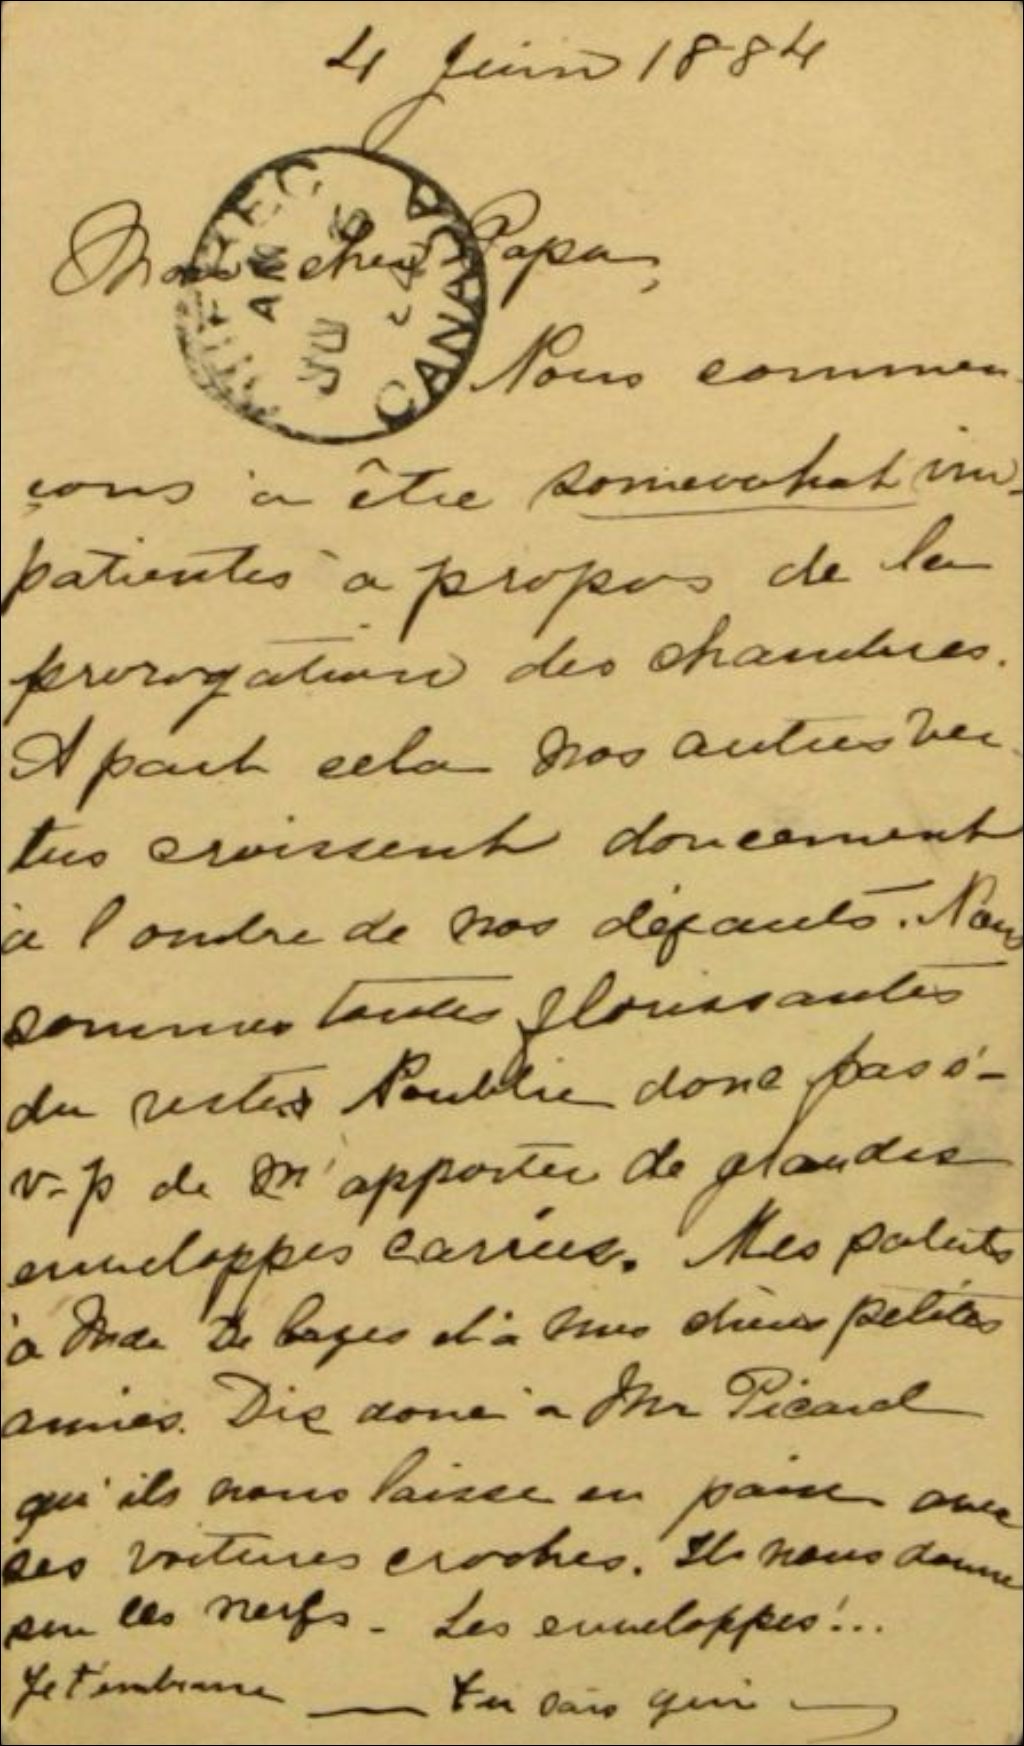 4 Juin 1884
QUEBEC
AM 5
JU
84
CANADA
Mon cher Papa,
Nous commen
çons à être somewhat im-
patientes à propos de la
prorogation des chambres.
A part cela nos autres ver
tus croissent doucement
à l ombre de nos défauts. Nous
sommes toutes florissantes
du reste. N'oublie donc pas s-
v-p de m'apporter de grandes
enveloppes carrées. Mes saluts
à Mde De et à mes chères petites
amies. Dis donc à Mr Picard
qu'ils nous laisse en paix avec
ses voitures croches. Ils nous donne
sur les nerfs - Les enveloppes!...
Je t'embrasse — tu sais qui —